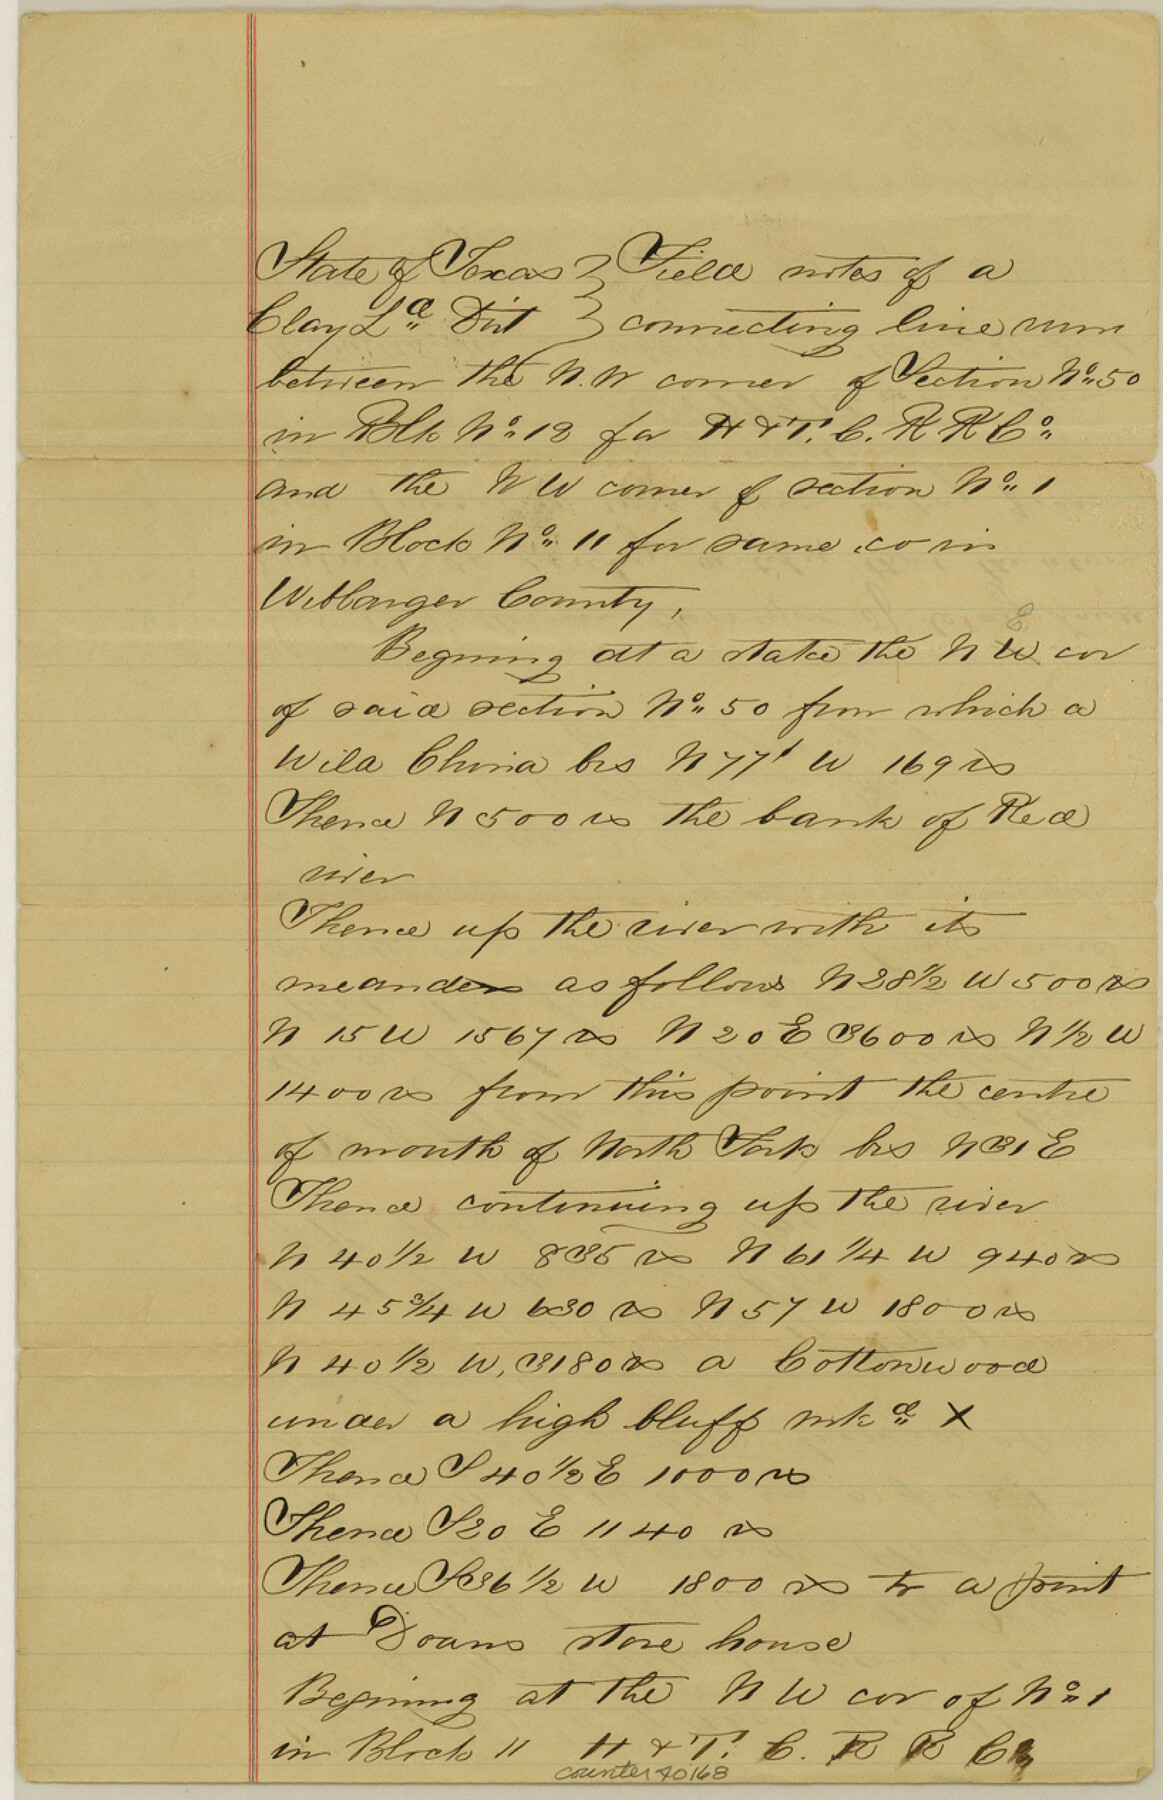 State of Texas } Field notes of a
Clay Ld Dist } connecting line run
between the N.W corner of Section No 50
in Blk No 12 for H & T. C. R R Co
and the N W corner of section No 1
in Block No 11 for same co in
Wilbarger County,
Begining at a stake the N W cor
E
of said section No 50 from which a
Wild China brs N 77 W 169 vs
Thence N 500 vs the bank of Red
river
Thence up the river with its
meanders as follows N 28 1/2 W 500 vs
N 15 W 1567 vs N 20 E 3600 vs N 1/2 W
1400 vs from this point the centre
of mouth of North Fork brs N 31 E
Thence continuing up the river
N 40 1/2 W 835 vs N 61 1/4 W 940 vs
N 45 3/4 W 630 vs N 57 W 1800 vs
N 40 1/2 W, 3180 vs a Cottonwood
under a high bluff mkd X
Thence S 40 1/2 E 1000 vs
Thence S 20 E 1140 vs
Thence S 36 1/2 W 1800 vs to a point
at Doans store house
Begining at the N W cor of No 1
in Block 11 H & T. C. R R Co
counter 40168